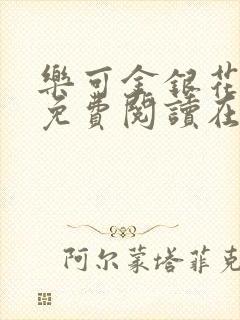 樂可金銀花
免費閱讀在
阿尔蒙塔菲克